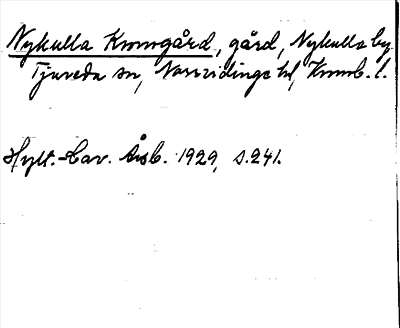 Nykulla Kronogård, gård, Nykulla by
Tjureda sn, Norrvidinge hd, Kronob. l.
Hylt.-Cav. Årsb. 1929, s. 241.